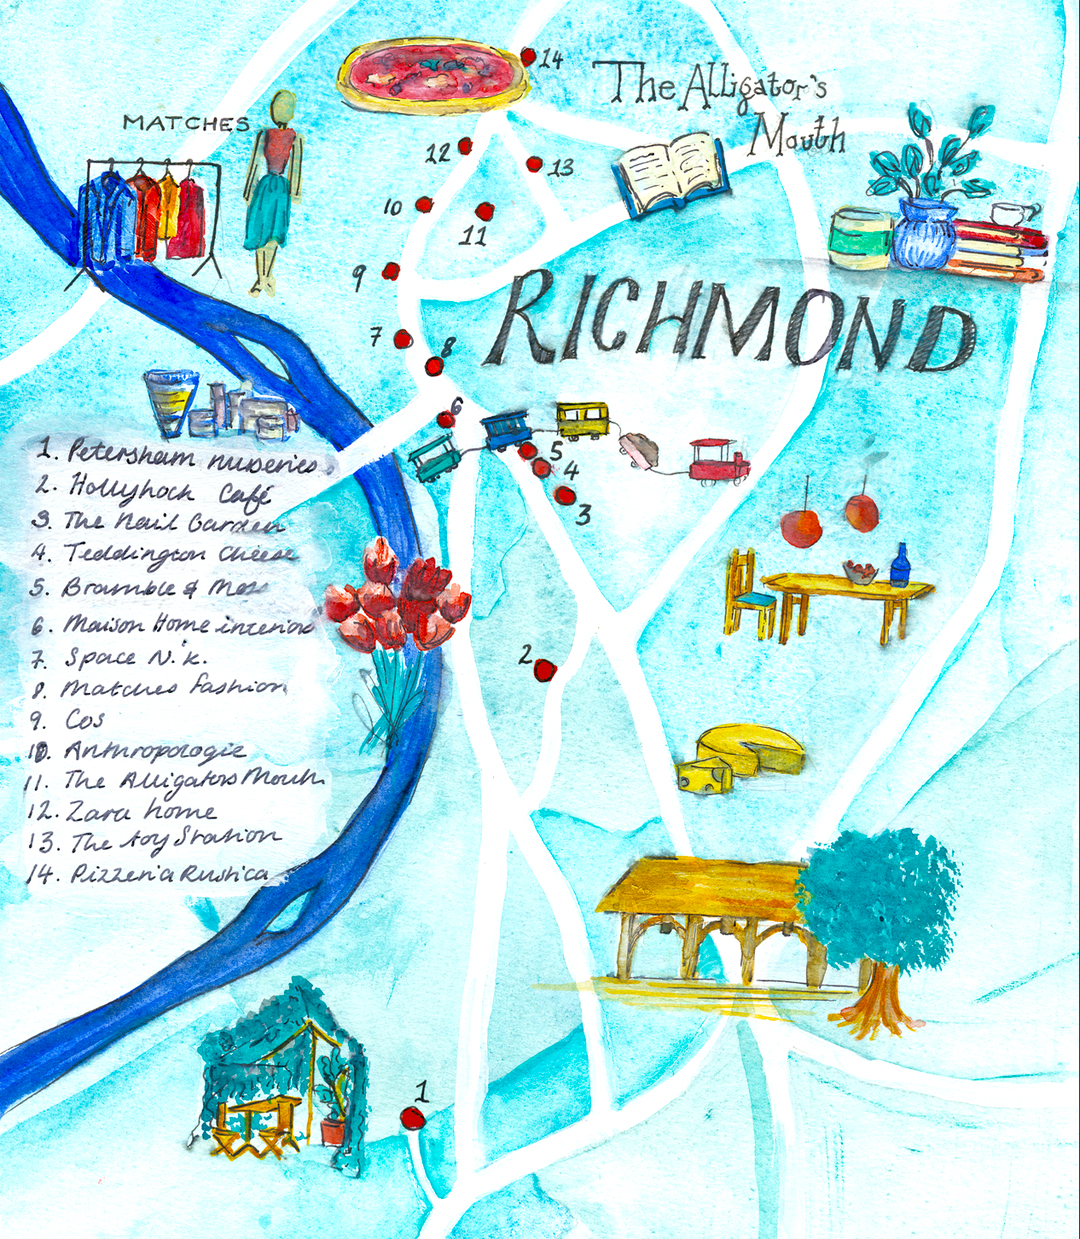 14
The Alligator's
Mouth
MATCHES
12
13
10
11
9
RICHMOND
7
8
6
5
4
3
1. Petersham nurseries
2. Hollyhock Café
3. The Nail Garden
4. Teddington Cheese
5. Bramble & Moss
6. Maison Home interiors
7. Space N.k.
8. Matches fashion
9. Cos
10. Anthropologie
11. The Alligators Mouth
12. Zara home
13. The toy Station
14. Pizzeria Rustica
2
1